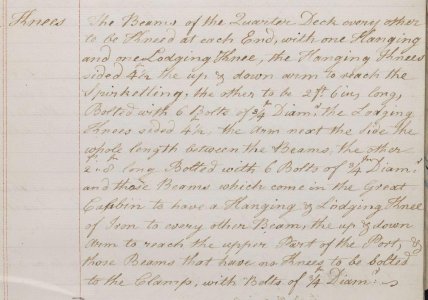 Knees The Beams of the Quarter Deck every other
to be Kneed at each End, with one Hanging
and one Lodging Knee, the Hanging Knees
sided 4½ the up & down arm to reach the
Spirketting, the other to be 2ft 6ins long,
Bolted with 6 Bolts of ¾ Diamr. the Lodging
Knees sided 4½. the arm next the Side the
whole length between the Beams, the other
long Bolted with 6 Bolts of ¾ Diamr.
and those Beams which come in the Great
Cabbin to have a Hanging & Lodging Knee
of Iron to every other Beam, the up & down
Arm to reach the upper Part of the Port, &
those Beams that have no Knees to be bolted
to the Clamp, with Bolts of ¾ Diamr.